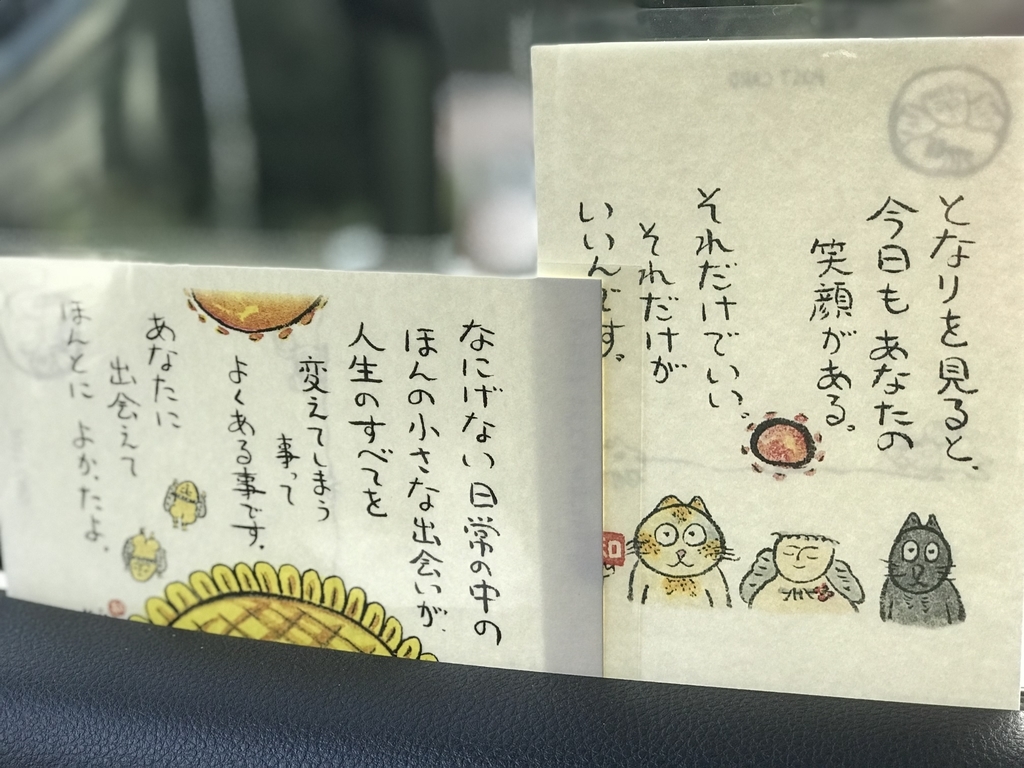 となりを見ると、
今日もあなたの
笑顔がある。
それだけでいい、
それだけが
いいんです。
和
なにげない日常の中の
ほんの小さな出会いが、
人生のすべてを
変えてしまう
事って
よくある事です。
あなたに
出会えて
ほんとに よかったよ。
POST CARD